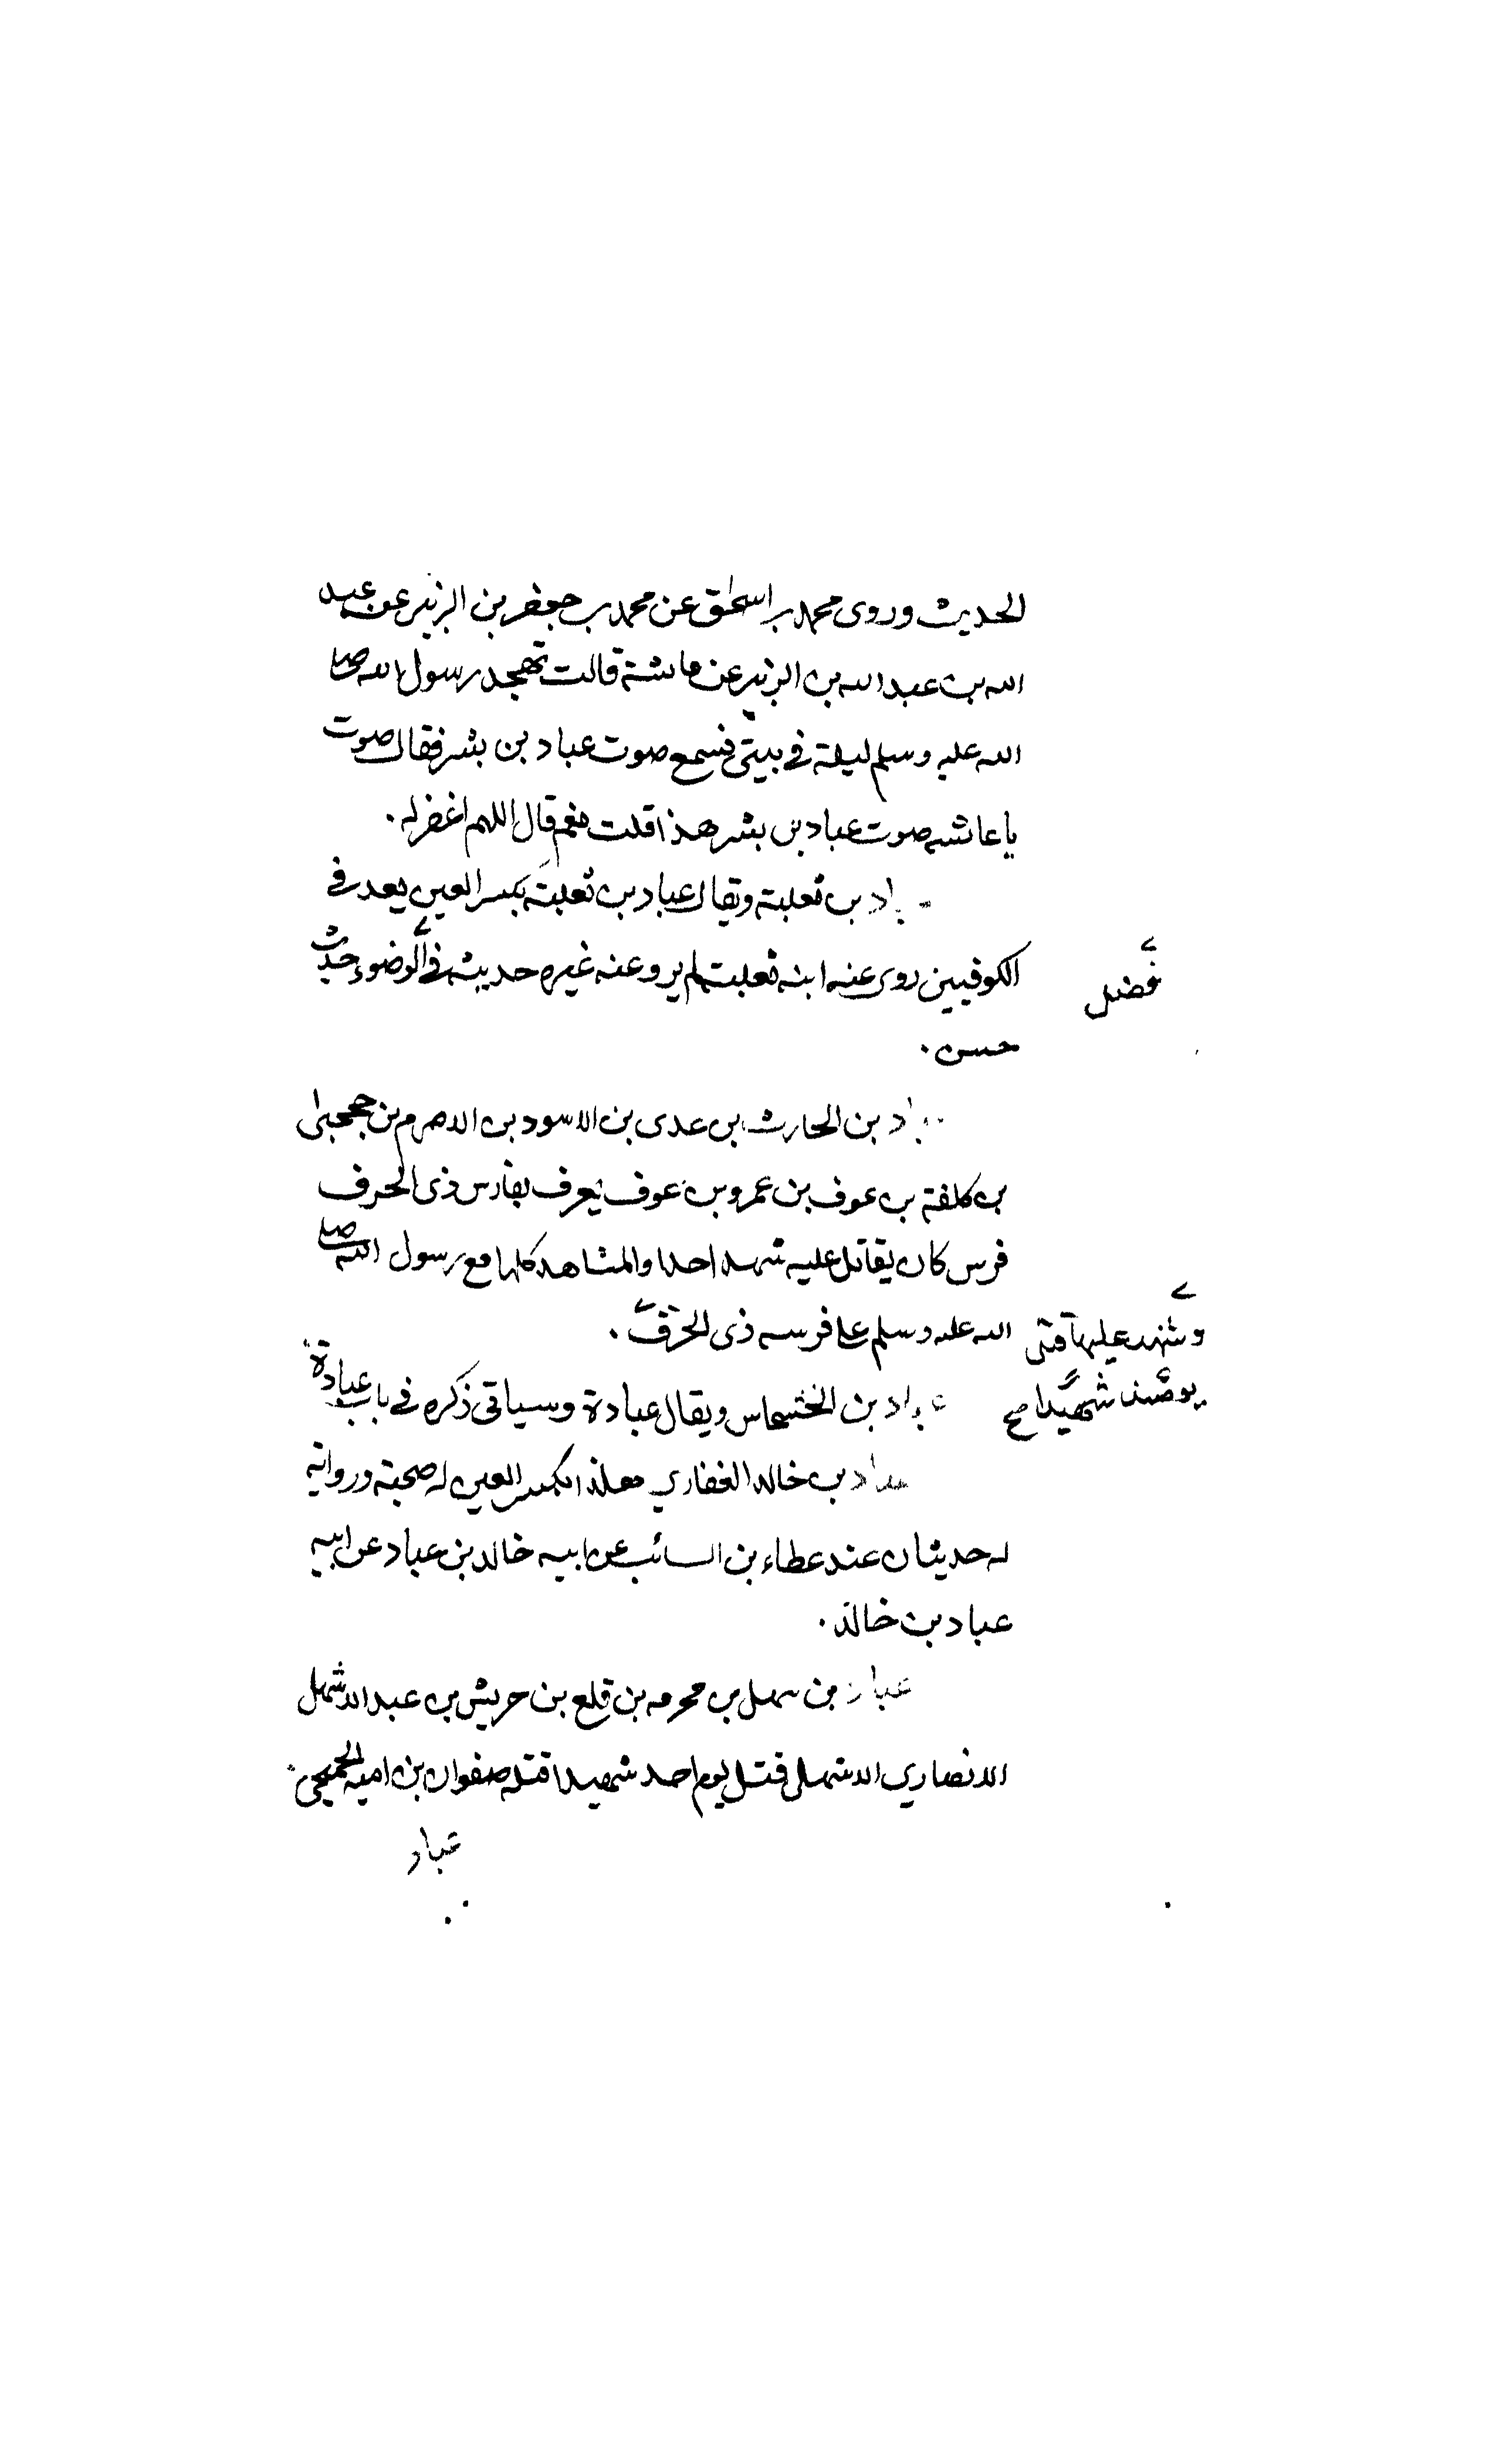 الحديث وروى محمد بن اسحق عن محمد بن جعفر بن الزبير عن عبيد
الله بن عبد الله بن الزبير عن عائشة قالت تهجد رسول الله صلى
الله عليه وسلم ليلة في بيتي فسمع صوت عباد بن بشر فقال صوت
يا عائشه صوت عباد بن بشر هذا قلت نعم قال اللهم اغفر له .
عباد بن ثعلبة ويقال عباد بن ثعلبة بكسر العين يعد في
الكوفيين روى عنه ابنه ثعلبة لم يرو عنه غيره حديثه في الوضوء حديث
فضل
حسن .
عباد بن الحارث بن عدى بن الاسود بن الاصرم بن جحجبى
بن كلفة بن عوف بن عمرو بن عوف يعرف بفارس ذى الحرف
فرس كان يقاتل عليه شهد احدا والمشاهد كلها مع رسول الله صلى
الله عليه وسلم على فرسه ذى الخرق .
وشهد عليها
يومئذ شهيدا صح
عباد بن الخشخاش ويقال عبادة وسياتى ذكره في باب عبادة
عباد بن خالد الغفاري بكسر العين له صحبة ورواية
له حديثان عند عطاء بن السائب عن ابيه خالد بن عباد عن ابيه
عباد بن خالد .
عباد بن سهل بن مخرمه بن قلع بن حريش بن عبد الاشهل
الانصاري الاشهلى قتل يوم احد شهيدا قتله صفوان بن اميه الجمحى
عباد